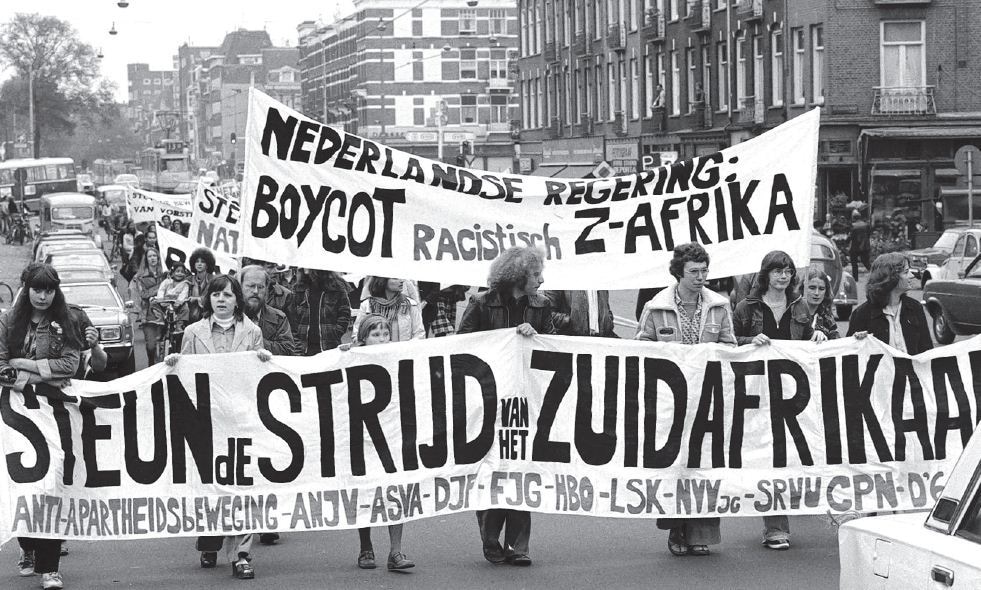 NEDERLANDSE REGERING:
BOYCOT RACISTISCH Z-AFRIKA
STE
NAT
VAN VORST
STEUN dE STRIJD VAN HET ZUIDAFRIKAA
ANTI-APARTHEIDSbEWEGING-ANJV-ASVA-DJF-FJG-HBO-LSK-NVVJG-SRVU CPN-D'6